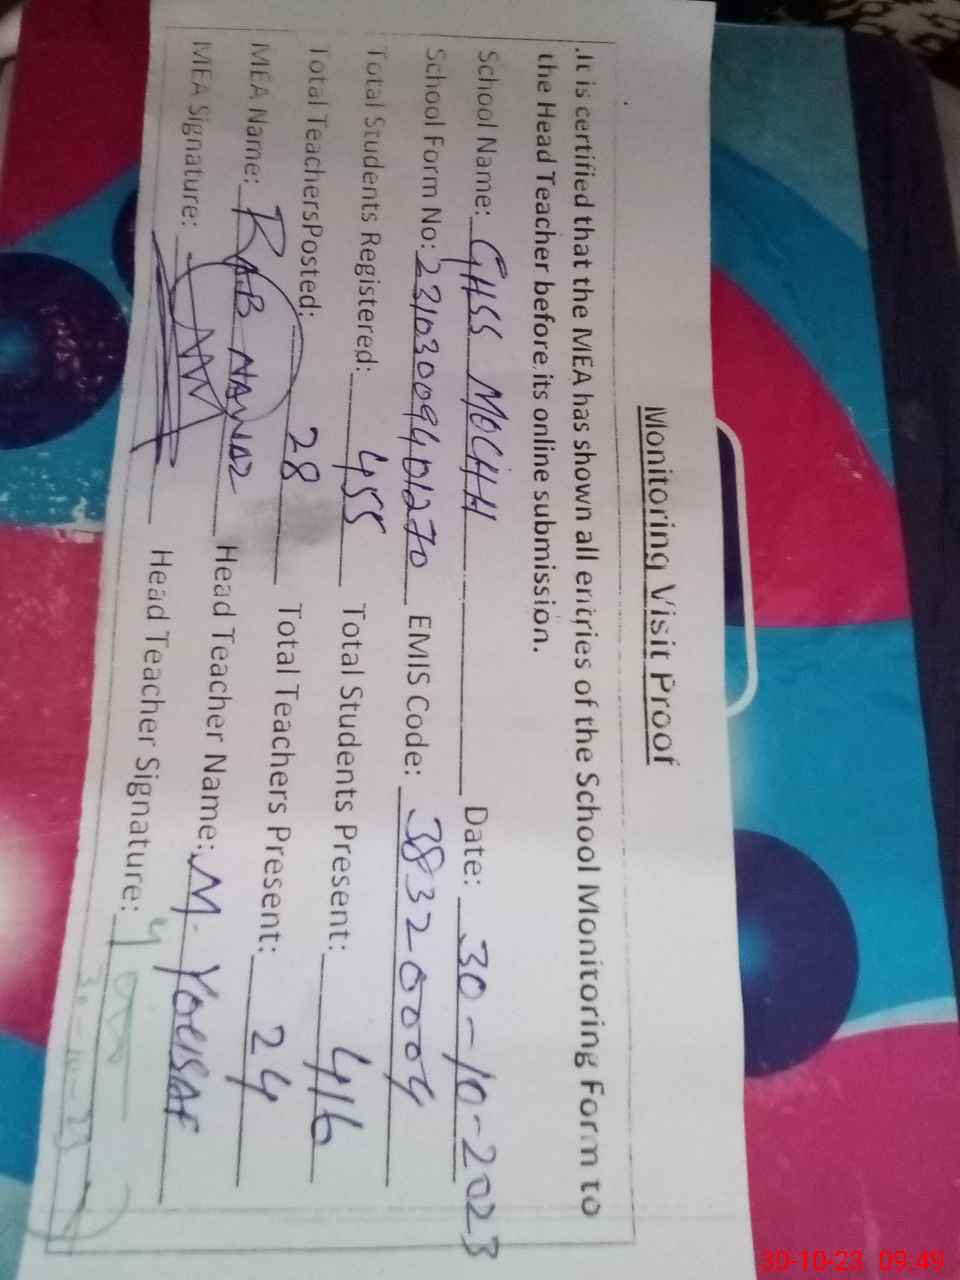 Monitoring Visit Proof
.It is certified that the MEA has shown all entries of the School Monitoring Form to
the Head Teacher before its online submission.
School Name: GHSS MOCHH Date: 30-10-2023
School Form No: 23103009401270 EMIS Code: 38320009
Total Students Registered: 455 Total Students Present: 416
Total TeachersPosted: 28 Total Teachers Present: 24
MEA Name: RAB NAWAZ Head Teacher Name: M. YOUSAF
MEA Signature: Head Teacher Signature:
30-10-23
30-10-23 09:49